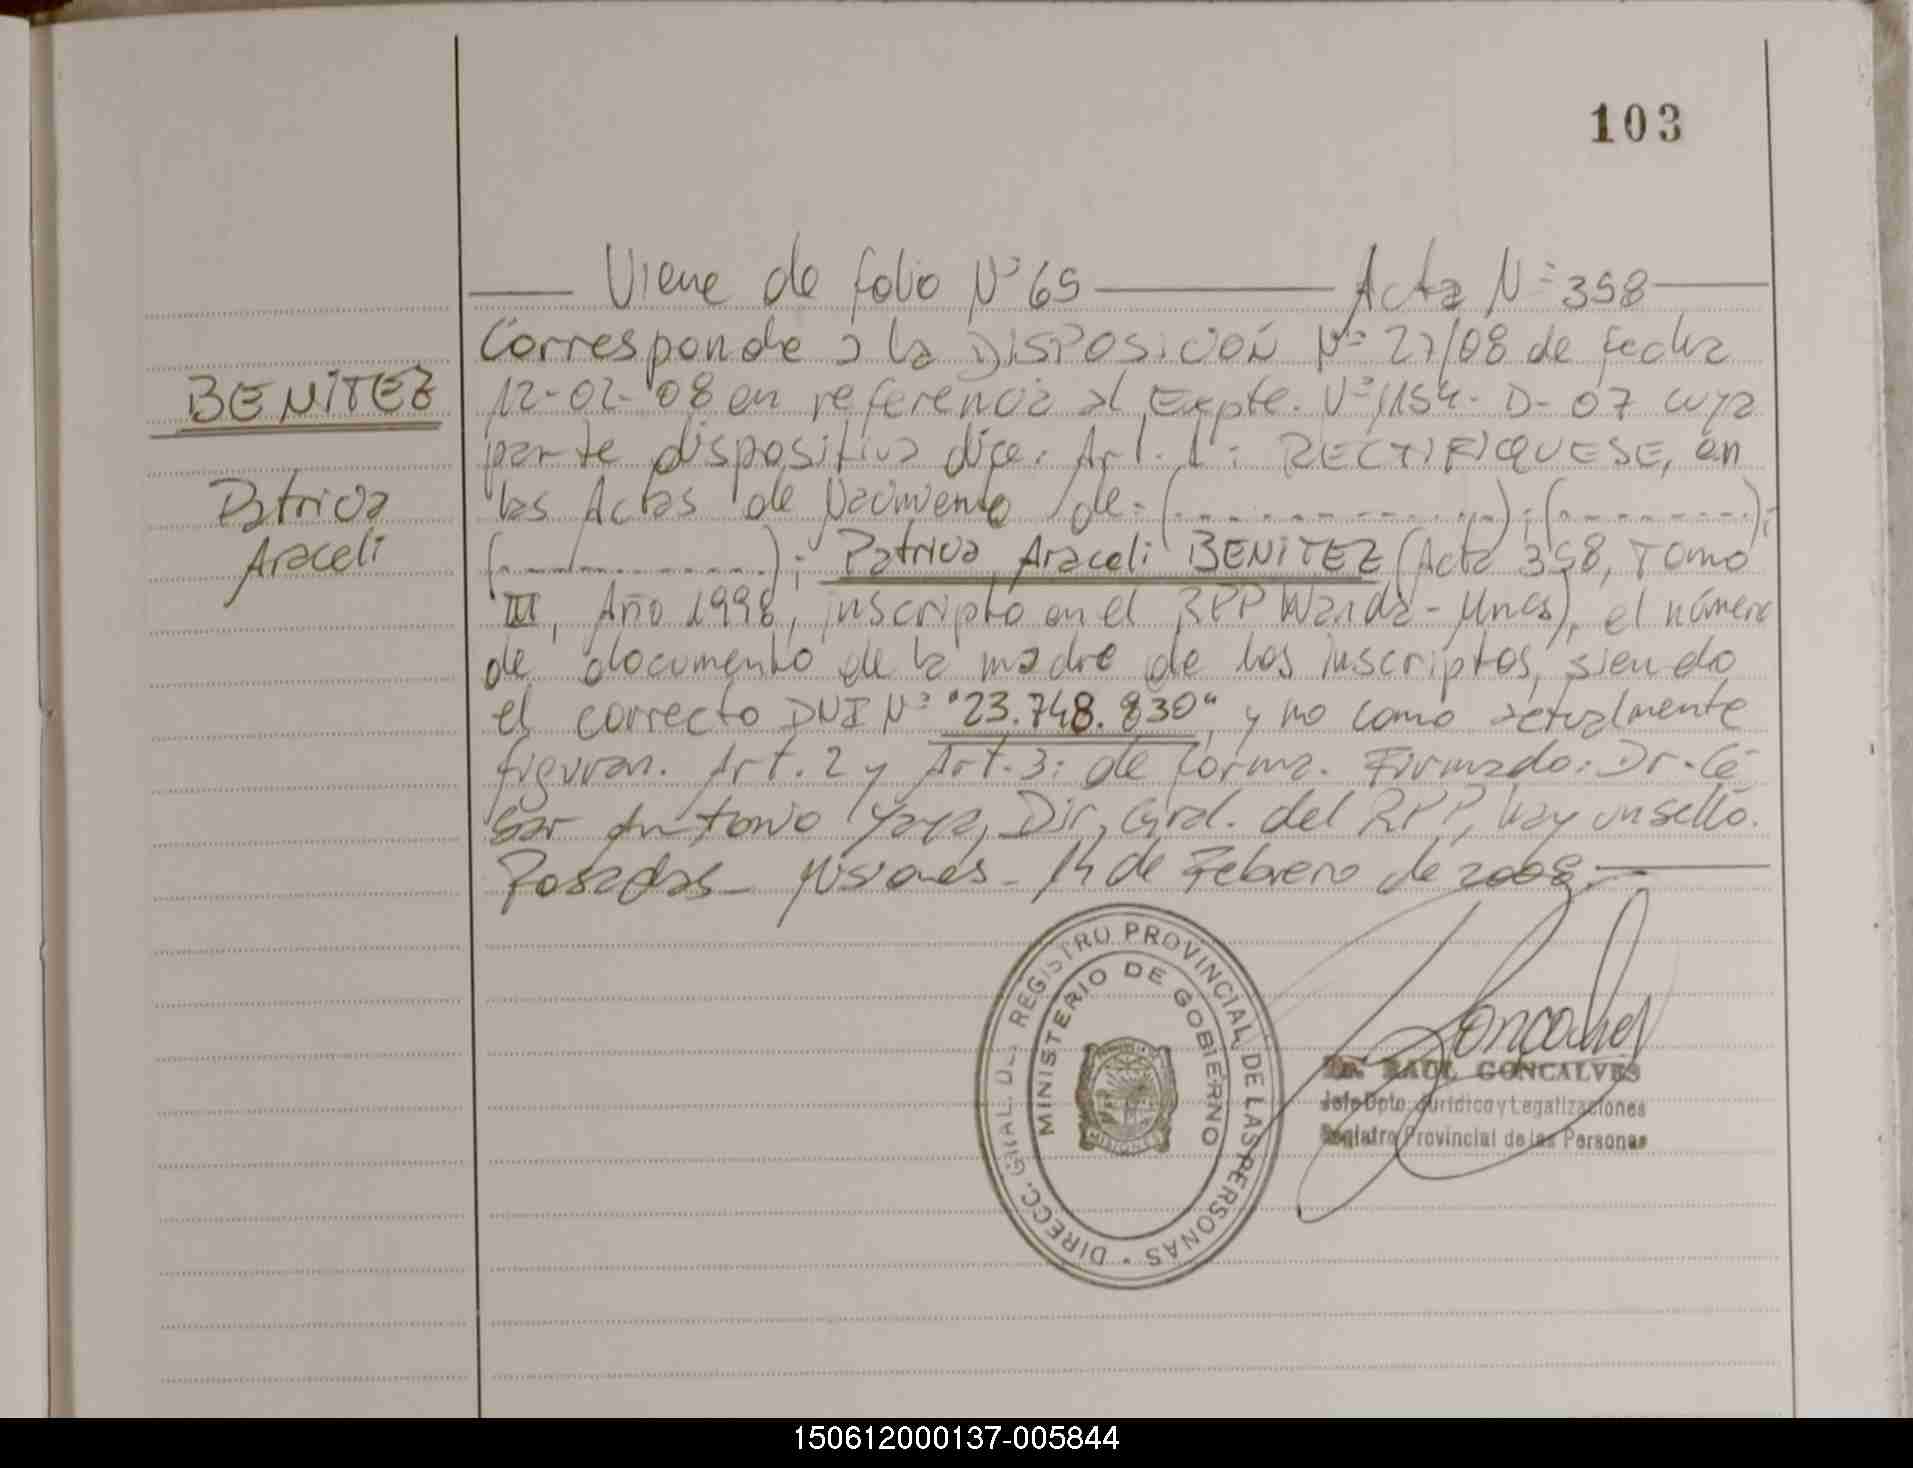 103
Viene de folio Nº 65 Acta Nº 358
Corresponde a la DISPOSICIÓN Nº 27/08 de fecha
BENITEZ
12-02-08 en referencia al Expte. Nº 1154-D-07 cuya
parte dispositiva dice: Art. 1: RECTIFIQUESE, en
Patricia
las Actas de Nacimiento de: (..............);(.........);
Araceli
(..............); Patricia Araceli BENITEZ (Acta 358, Tomo
III, Año 1998, inscripto en el RPP Wanda-Mnes), el número
de documento de la madre de los inscriptos, siendo
el correcto DNI Nº "23.748.830", y no como actualmente
figuran. Art. 2 y Art. 3: de forma. Firmado: Dr. Cé
sar Antonio Yaya, Dir, Gral. del RPP, hay un sello.
Posadas - Misiones - 14 de Febrero de 2008.
DIRECC. GRAL. DEL REGISTRO PROVINCIAL DE LAS PERSONAS
MINISTERIO DE GOBIERNO
MISIONES
Dr. RAUL GONCALVES
Jefe Dpto. Jurídico y Legalizaciones
Registro Provincial de las Personas
150612000137-005844